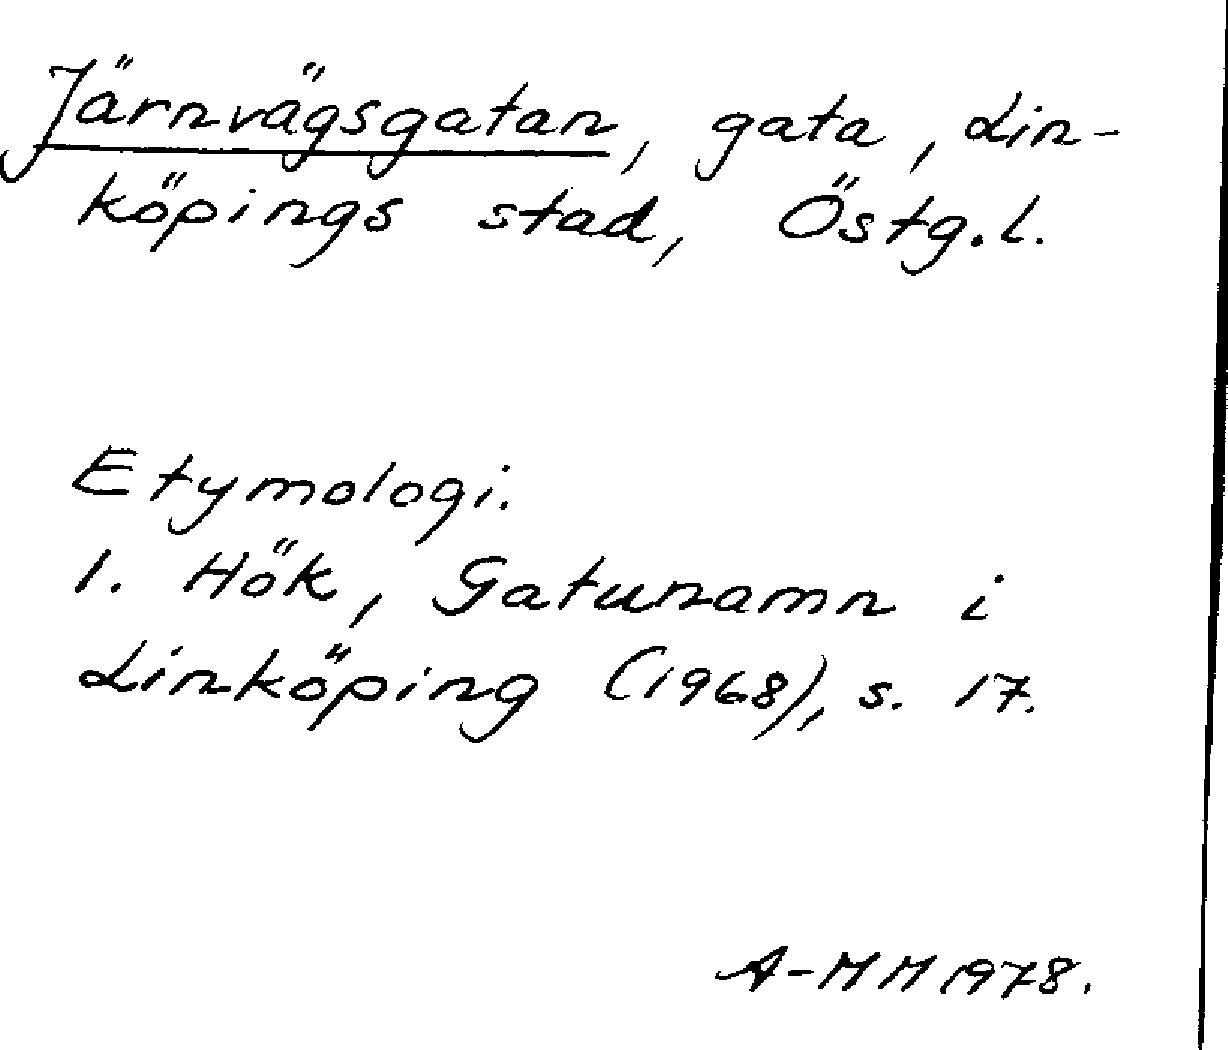 Järnvägsgatan, gata, Lin-
köpings stad, Östg.l.
Etymologi.
1. Hök, Gatunamn i
Linköping (1968), s. 17.
A-MM 1978.